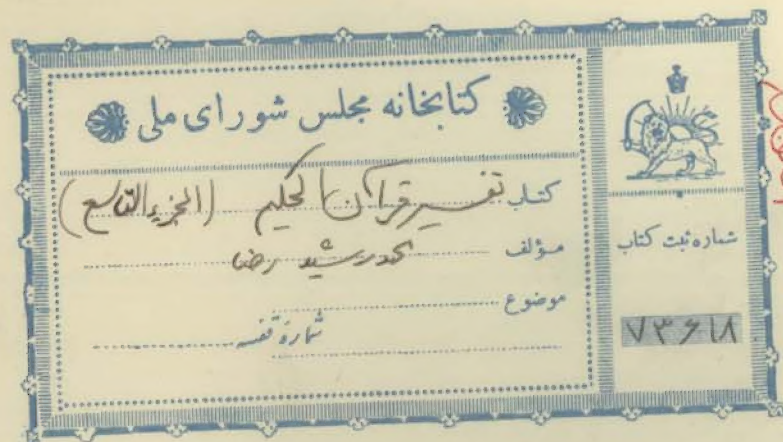 کتابخانه مجلس شورای ملی
کتاب تفسیر قرآن الحکیم (الجزء التاسع)
مؤلف محمد رشید رضا
موضوع
شماره قفسه
شماره ثبت کتاب
۷۳۶۱۸